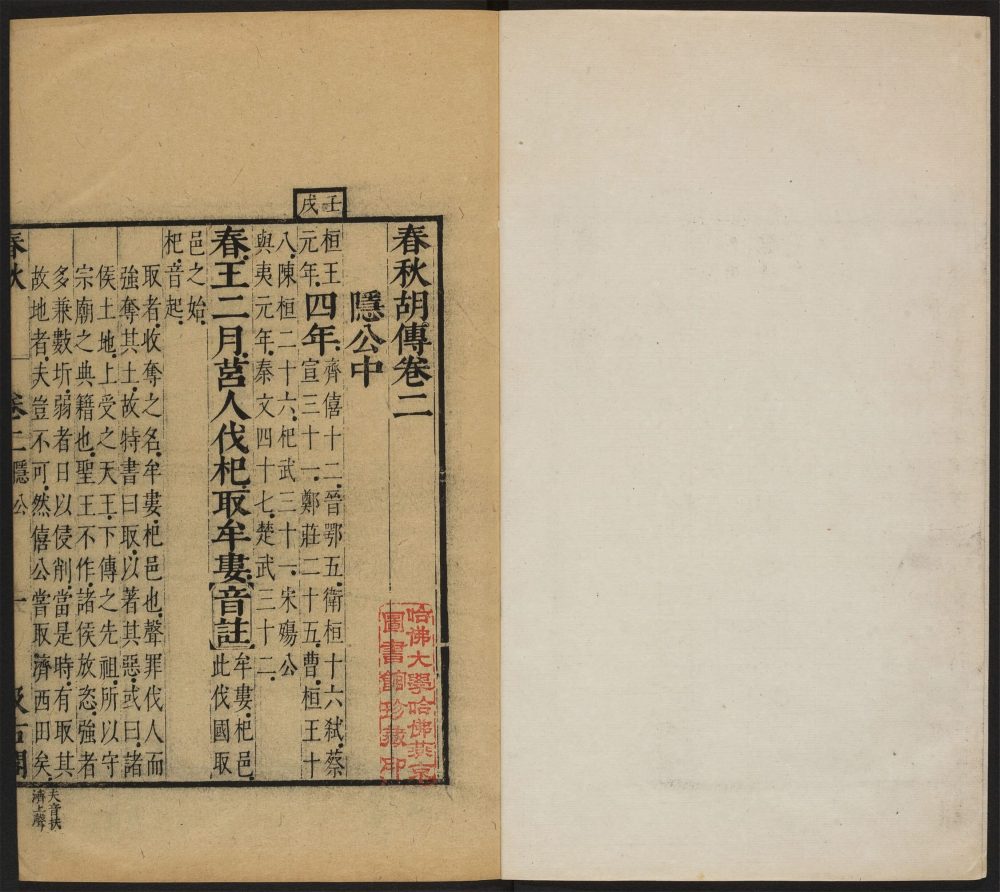 壬戌
春秋胡傳卷二
隱公中
桓王元年.四年.齊僖十二.晉鄂五.衛桓十六弒.蔡宣三十一.鄭莊二十五.曹桓王十
八.陳桓二十六.杞武三十一.宋殤公與夷元年.秦文四十七.楚武三十二.
春.王二月.莒人伐杞.取牟婁.【音註】牟婁.杞邑.此伐國取
邑之始.杞.音起.
取者.收奪之名.牟婁.杞邑也.聲罪伐人而
強奪其土.故特書曰取.以著其惡.或曰.諸
侯土地.上受之天王.下傳之先祖.所以守
宗廟之典籍也.聖王不作.諸侯放恣.強者
多兼數圻.弱者日以侵削.當是時.有取其
故地者.夫豈不可.然僖公嘗取濟西田矣.
夫音扶
濟上聲
春秋 卷二隱公 一 汲古閣
哈佛大學哈佛燕京
圖書館珍藏印